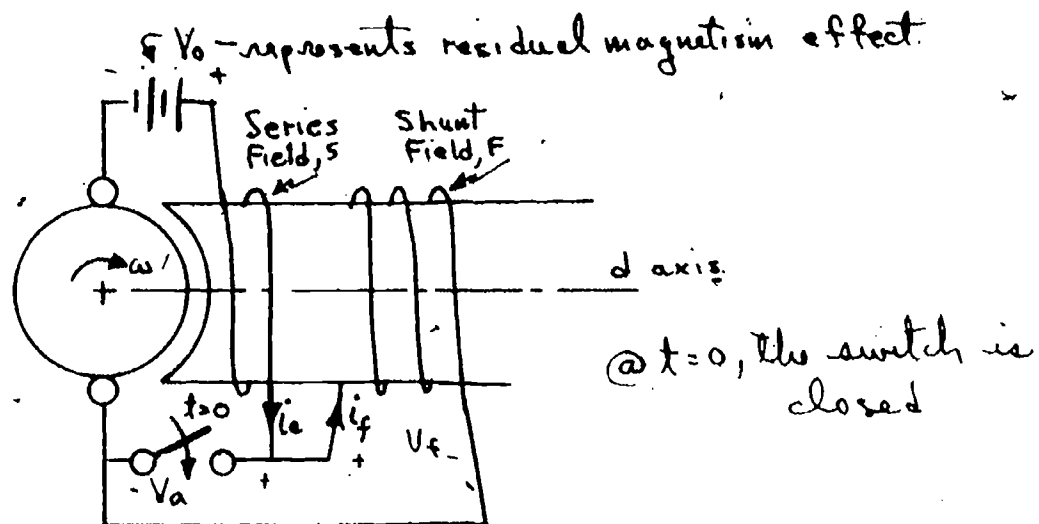 V₀ - represents residual magnetism effect.
- +
Series Field, S
Shunt Field, F
ω
d axis.
@ t=0, the switch is closed
t=0
iₑ
i_f
V_f -
+ +
- Vₐ